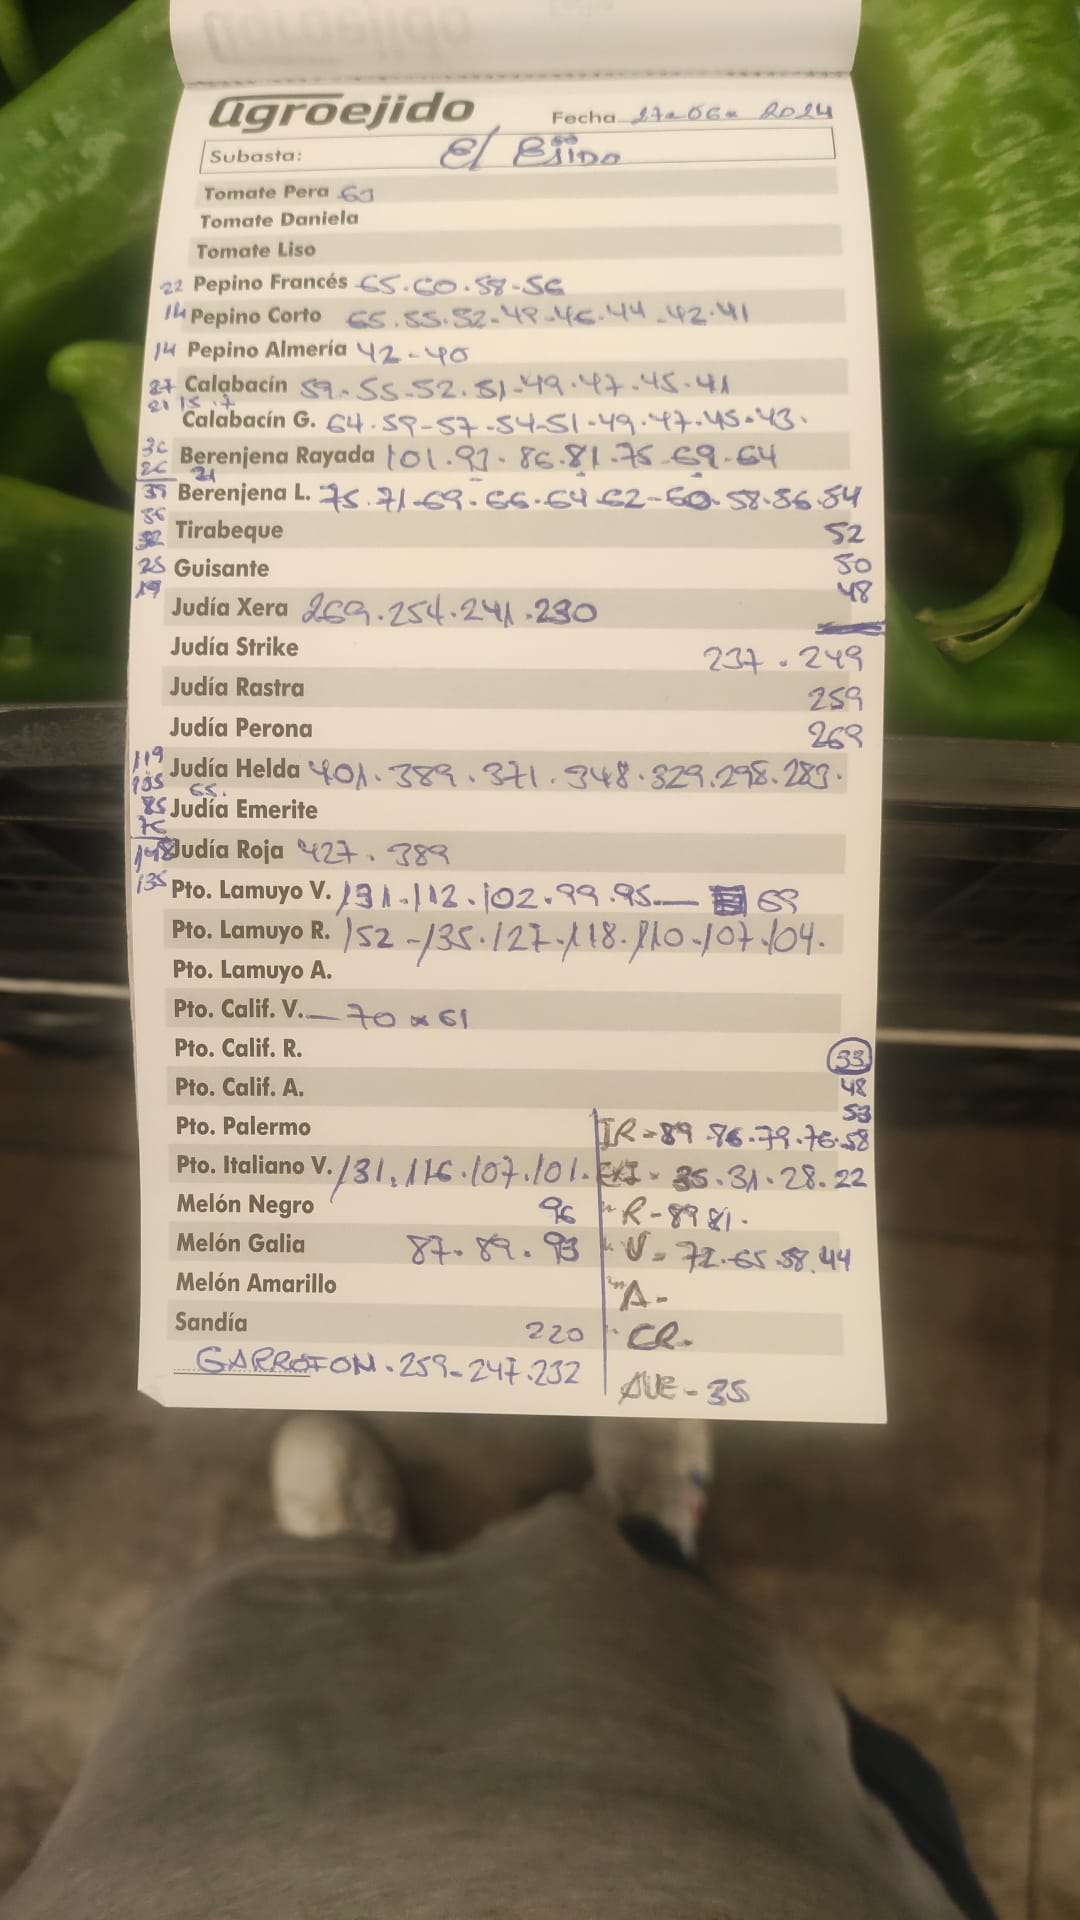 agroejido
Fecha 27-06-2024
Subasta: El Ejido
Tomate Pera 63
Tomate Daniela
Tomate Liso
22 Pepino Francés 65.60.58-56
14 Pepino Corto 65.55.52-49-46.44-42.41
14 Pepino Almería 42-40
27 Calabacín 59-55-52.51-49.47.45.41
21 15.7
Calabacín G. 64.59-57-54-51-49.47.45.43.
36 Berenjena Rayada 101.93-86.81.75-69-64
26 21
39 Berenjena L. 75.71-69.66.64-62-60.58.56.54
36
Tirabeque 52
25 Guisante 50
19 48
Judía Xera 269.254.241.230
Judía Strike 237.249
Judía Rastra 259
Judía Perona 269
119
Judía Helda 401.389.371.348.329.298.283.
105 65.
85 Judía Emerite
76
148 Judía Roja 427.389
135 Pto. Lamuyo V. 131.112.102.99.95.— 69
Pto. Lamuyo R. 152-135.127.118.110.107.104.
Pto. Lamuyo A.
Pto. Calif. V.— 70 x 61
Pto. Calif. R. 33
Pto. Calif. A. 48
53
Pto. Palermo IR-89.86.79.76.58
Pto. Italiano V. 131.116.107.101. EXI- 35.31.28.22
Melón Negro 96 " R-89 81.
Melón Galia 87.89.93 " V-72.65.58.44
Melón Amarillo " A-
Sandía 220 " CR.
GARROFON.259-247.232
AVE-35